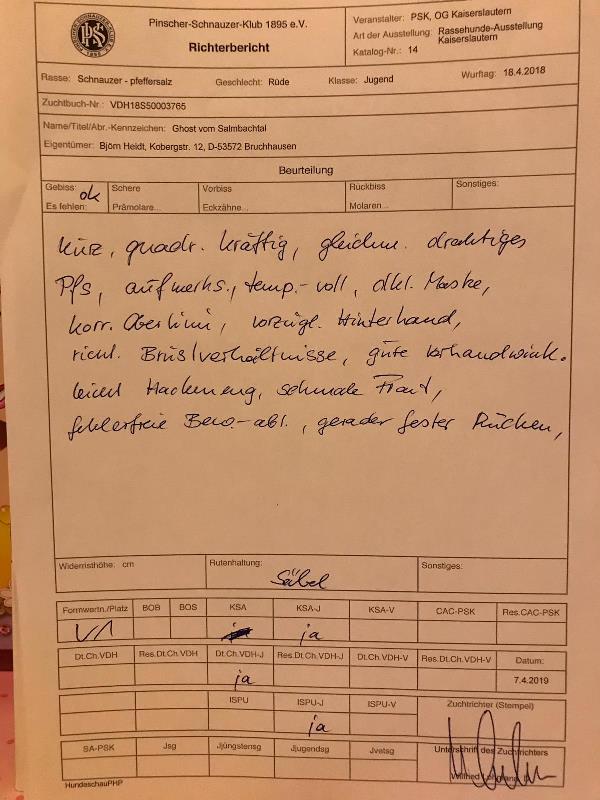 Pinscher-Schnauzer-Klub 1895 e.V.
Richterbericht
PSK
Veranstalter: PSK, OG Kaiserslautern
Art der Ausstellung: Rassehunde-Ausstellung
Kaiserslautern
Katalog-Nr.: 14
Rasse: Schnauzer - pfeffersalz Geschlecht: Rüde Klasse: Jugend Wurftag: 18.4.2018
Zuchtbuch-Nr.: VDH18S50003765
Name/Titel/Abr.-Kennzeichen: Ghost vom Salmbachtal
Eigentümer: Björn Heidt, Kobergstr. 12, D-53572 Bruchhausen
Beurteilung
Gebiss: ok Schere Vorbiss Rückbiss Sonstiges:
Es fehlen: Prämolare... Eckzähne... Molaren...
kurz, quadr. kräftig, gleichm. drahtiges
Pfs, aufmerks., temp.-voll, dkl. Maske,
korr. Oberlinie, vorzügl. Hinterhand,
richt. Brustverhältnisse, gute Vorhandwink.
leicht Hackeneng, schmale Front,
fehlerfreie Bew.-abl., gerader fester Rücken,
Widerristhöhe: cm Rutenhaltung: Säbel Sonstiges:
Formwertn./Platz BOB BOS KSA KSA-J KSA-V CAC-PSK Res.CAC-PSK
V1 ja
Dt.Ch.VDH Res.Dt.Ch.VDH Dt.Ch.VDH-J Res.Dt.Ch.VDH-J Dt.Ch.VDH-V Res.Dt.Ch.VDH-V Datum:
ja 7.4.2019
ISPU ISPU-J ISPU-V Zuchtrichter (Stempel)
ja
SA-PSK Jsg Jjüngstensg Jjugendsg Jvetsg Unterschrift des Zuchtrichters
Wilfried
HundeschauPHP